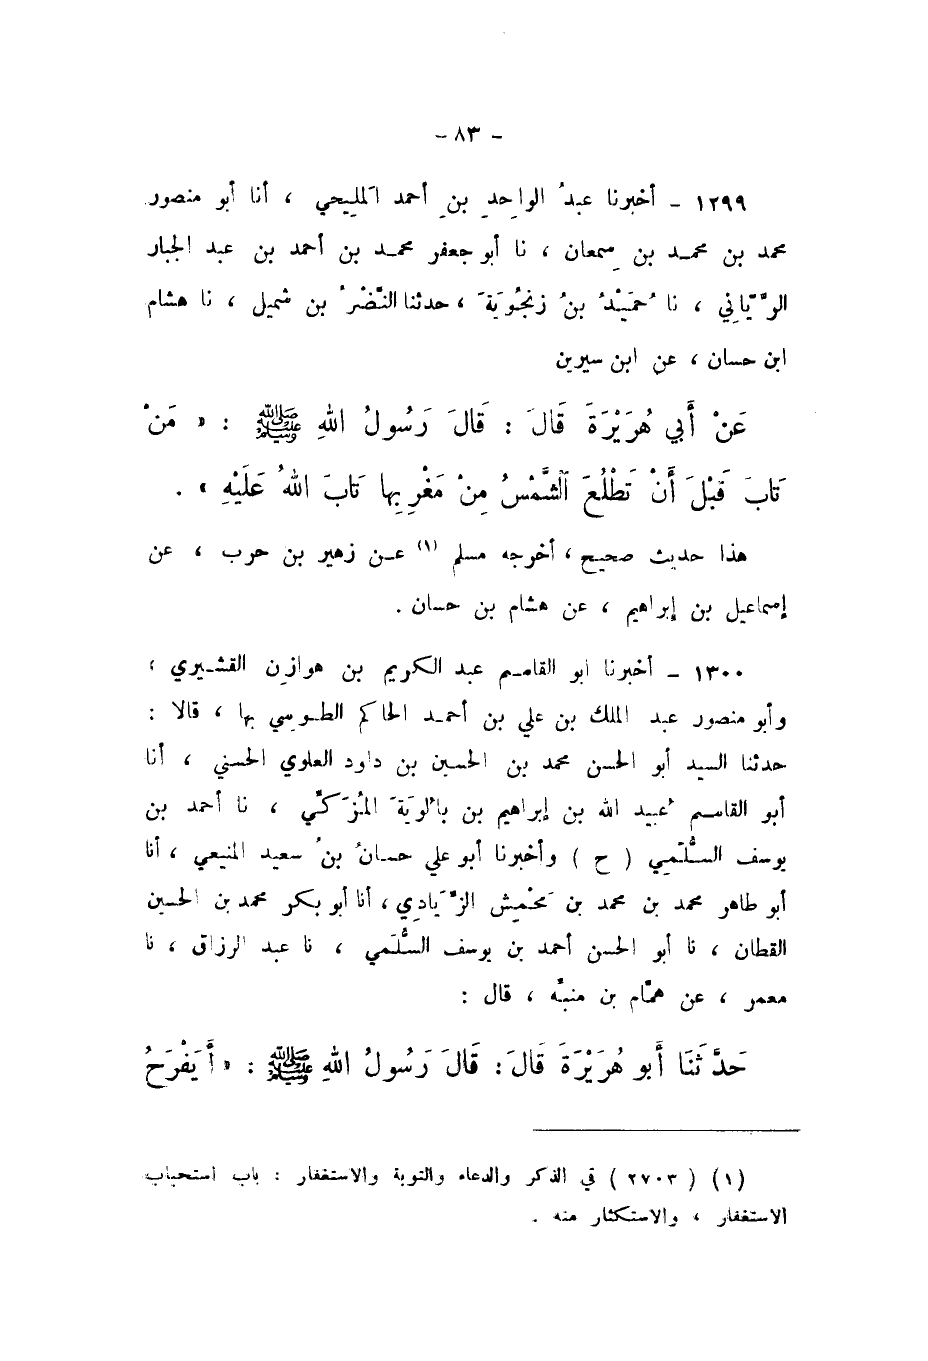 - ٨٣ -
١٢٩٩ - أخبرنا عبدُ الواحدِ بنِ أحمد المَلِيحي ، أنا أبو منصور
محمد بن محمـد بن سِمعان ، نا أبو جعفر محمـد بن أحمد بن عبد الجبار
الرَّيَّاني ، نا حُمَيْدُ بنُ زنجُويَةَ ، حدثنا النَّضْرُ بن شميل ، نا هشام
ابن حسان ، عن ابن سيرين
عَنْ أَبي هُرَيْرَةَ قَالَ : قَالَ رَسُولُ اللهِ ﷺ : « مَنْ
تَابَ قَبْلَ أَنْ تَطْلُعَ الشَّمْسُ مِنْ مَغْرِبِها تَابَ اللهُ عَلَيْهِ » .
هذا حديث صحيح ، أخرجه مسلم (١) عـن زهير بن حرب ، عن
إسماعيل بن إبراهيم ، عن هشام بن حسان .
١٣٠٠ - أخبرنا ابو القاسـم عبد الكريم بن هوازن القشـيري ،
وأبو منصور عبد الملك بن علي بن أحمـد الحاكم الطـوسي بها ، قالا :
حدثنا السيد أبو الحسن محمد بن الحسين بن داود العلوي الحسني ، أنا
أبو القاسـم عُبيد الله بن إبراهيم بن بالُويَةَ المُزَكّي ، نا أحمد بن
يوسف السُّلَمي ( ح ) وأخبرنا أبو علي حسانُ بنُ سعيد المنيعي ، أنا
أبو طاهر محمد بن محمد بن مَحْمِش الزَّيَادي ، أنا أبو بكر محمد بن الحسين
القطان ، نا أبو الحسن أحمد بن يوسف السُّلَمي ، نا عبد الرزاق ، نا
معمر ، عن همَّام بن منبّه ، قال :
حَدَّثَنَا أَبو هُرَيْرَةَ قَالَ : قَالَ رَسُولُ اللهِ ﷺ : « أَيَفْرَحُ
(١) ( ٢٧٠٣ ) في الذكر والدعاء والتوبة والاستغفار : باب استحباب
الاستغفار ، والاستكثار منه .